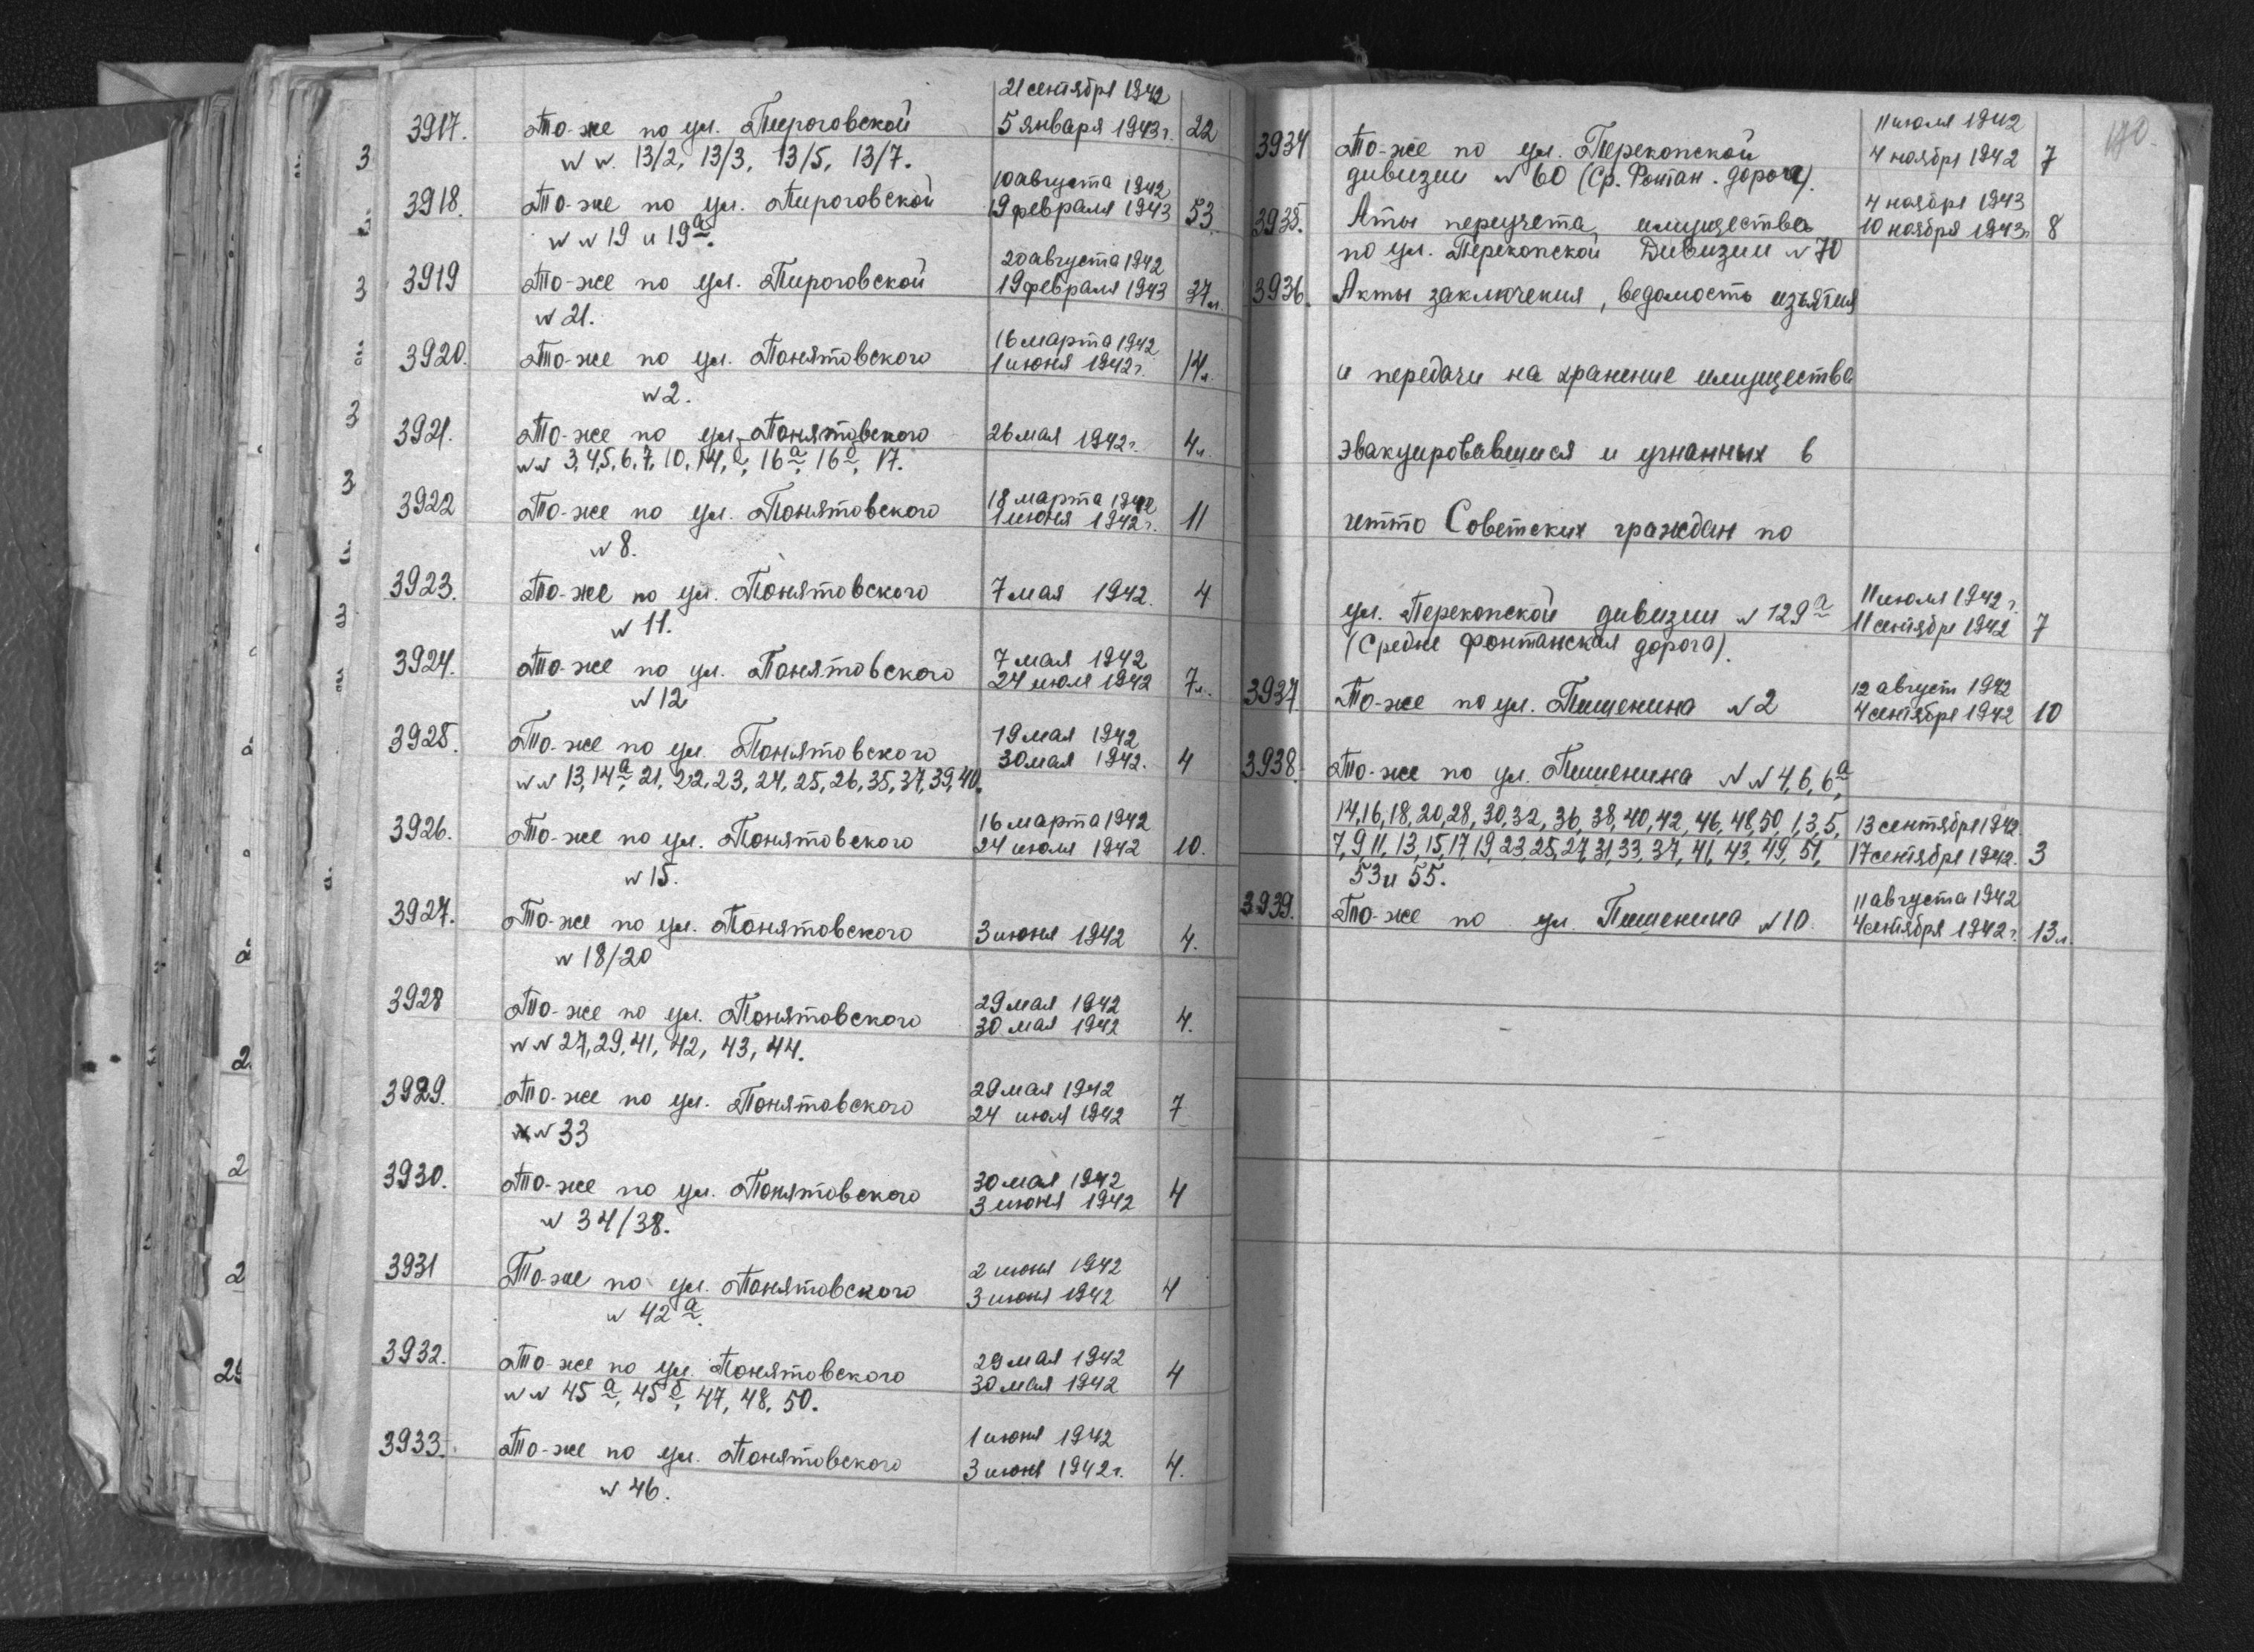 21 сентября 1942
3917. То-же по ул. Пироговской 5 января 1943 г. 22
N N. 13/2, 13/3, 13/5, 13/7.
10 августа 1942
3918. То-же по ул. Пироговской 19 февраля 1943 53
N N 19 и 19а.
20 августа 1942
3919 То-же по ул. Пироговской 19 февраля 1943 37 л.
N 21.
16 марта 1942
3920. То-же по ул. Понятовского 1 июня 1942 г. 14 л.
N 2.
3921. То-же по ул. Понятовского 26 мая 1942 г. 4 л.
N N 3, 4, 5, 6, 7, 10, 14, 16а, 16б, 17.
18 марта 1942
3922 То-же по ул. Понятовского 1 июня 1942 г. 11
N 8.
3923. То-же по ул. Понятовского 7 мая 1942. 4
N 11.
7 мая 1942
3924. То-же по ул. Понятовского 24 июля 1942 7 л.
N 12
19 мая 1942
3925. То-же по ул. Понятовского 30 мая 1942. 4
N N 13, 14а, 21, 22, 23, 24, 25, 26, 35, 37, 39, 40.
16 марта 1942
3926. То-же по ул. Понятовского 24 июля 1942 10.
N 15.
3927. То-же по ул. Понятовского 3 июня 1942 4.
N 18/20
29 мая 1942
3928 То-же по ул. Понятовского 30 мая 1942 4.
N N 27, 29, 41, 42, 43, 44.
29 мая 1942
3929. То-же по ул. Понятовского 24 июля 1942 7
N 33
30 мая 1942
3930. То-же по ул. Понятовского 3 июня 1942 4
N 34/38.
2 июня 1942
3931 То-же по ул. Понятовского 3 июня 1942 4
N 42а.
29 мая 1942
3932. То-же по ул. Понятовского 30 мая 1942 4
N N 45а, 45б, 47, 48, 50.
1 июня 1942
3933. То-же по ул. Понятовского 3 июня 1942 г. 4.
N 46.
11 июля 1942
3934 То-же по ул. Перекопской 4 ноября 1942 7
дивизии N 60 (Ср. Фонтан. дорога).
4 ноября 1943
3935. Аты переучета имущества 10 ноября 1943 г. 8
по ул. Перекопской Дивизии N 70
3936. Акты заключения, ведомость изъятия
и передачи на хранение имущества
эвакуировавшися и угнанных в
гетто Советских граждан по
11 июля 1942 г.
ул. Перекопской дивизии N 129а 11 сентября 1942 7
(Средне Фонтанская дорога).
12 август 1942
3937 То-же по ул. Пишенина N 2 4 сентября 1942 10
3938. То-же по ул. Пишенина N N 4, 6, 6а,
14, 16, 18, 20, 28, 30, 32, 36, 38, 40, 42, 46, 48, 50, 1, 3, 5, 13 сентября 1942.
7, 9, 11, 13, 15, 17, 19, 23, 25, 27, 31, 33, 37, 41, 43, 49, 51, 17 сентября 1942. 3
53 и 55.
11 августа 1942
3939. То-же по ул. Пишенина N 10. 4 сентября 1942 г. 13 л.